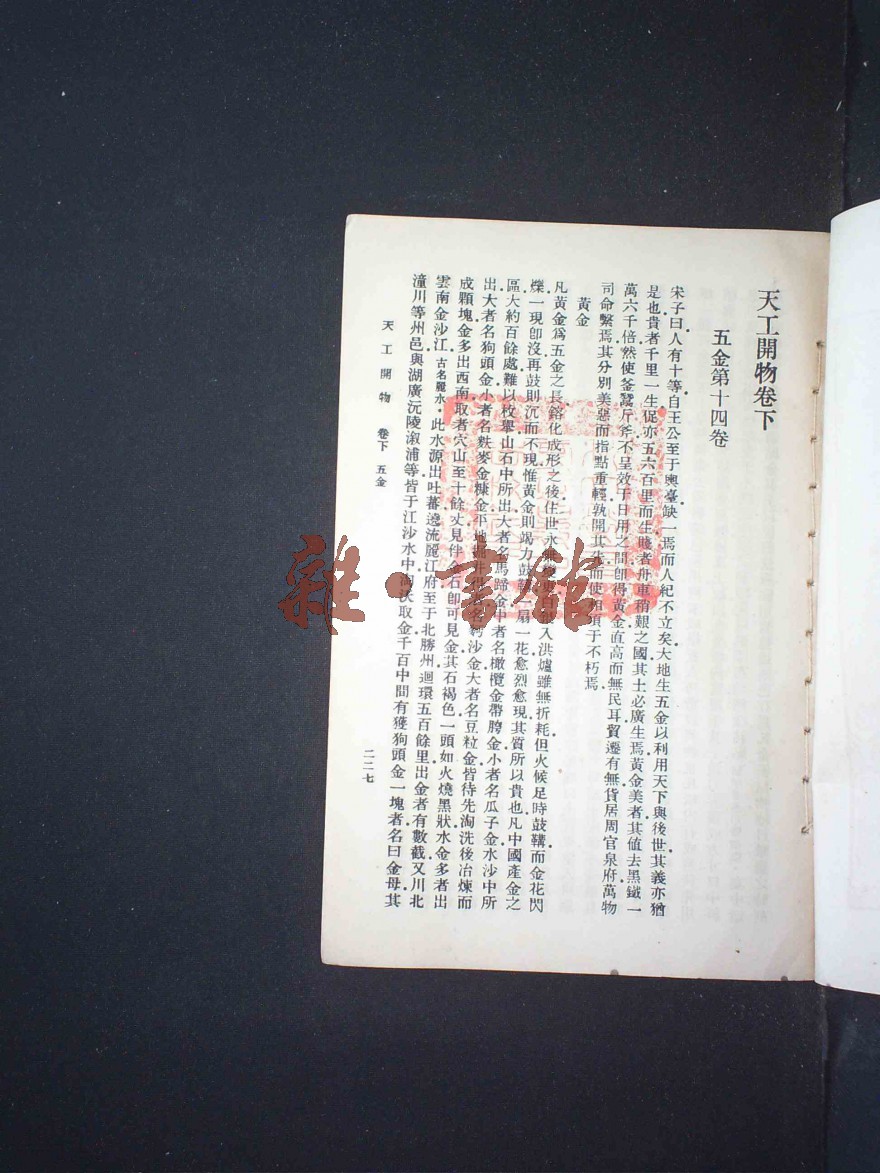 天工開物卷下
五金第十四卷
宋子曰人有十等自王公至于輿臺缺一焉而人紀不立矣大地生五金以利用天下與後世其義亦猶
是也貴者千里一生促亦五六百里而生賤者舟車稍艱之國其土必廣生焉黃金美者其值去黑鐵一
萬六千倍然使釜鬵斤斧不呈效于日用之間卽得黃金直高而無民耳貿遷有無貨居周官泉府萬物
司命繫焉其分別美惡而指點重輕孰開其先而使相須于不朽焉
黃金
凡黃金爲五金之長鎔化成形之後住世永無入洪爐雖無折耗但火候足時鼓鞲而金花閃
爍一現卽沒再鼓則沉而不現惟黃金則竭力鼓鞲一扇一花愈烈愈現其質所以貴也凡中國產金之
區大約百餘處難以枚舉山石中所出大者名馬蹄金中者名橄欖金帶胯金小者名瓜子金水沙中所
出大者名狗頭金小者名麩麥金糠金平地掘井得者名麪沙金大者名豆粒金皆待先淘洗後冶煉而
成顆塊金多出西南取者穴山至十餘丈見伴金石卽可見金其石褐色一頭如火燒黑狀水金多者出
雲南金沙江古名麗水此水源出吐蕃遶流麗江府至于北勝州迴環五百餘里出金者有數截又川北
潼川等州邑與湖廣沅陵溆浦等皆于江沙水中淘沃取金千百中間有獲狗頭金一塊者名曰金母其
天工開物 卷下 五金
二二七
雜·書館